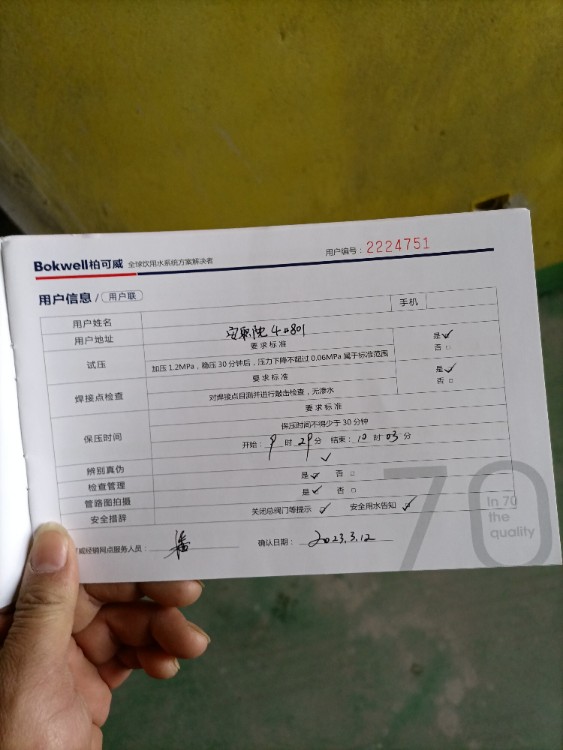 Bokwell柏可威 全球饮用水系统方案解决者
用户编号：2224751
用户信息/用户联
用户姓名 手机
用户地址 4-2801
试压 要求标准 是✓
加压1.2MPa，稳压30分钟后，压力下降不超过0.06MPa属于标准范围 否□
焊接点检查 要求标准 是✓
对焊接点目测并进行敲击检查，无渗水 否□
保压时间 要求标准
保压时间不得少于30分钟
开始：9时29分 结束：10时03分
✓
辨别真伪
检查管理 是✓ 否□
管路图拍摄 是✓ 否□
安全措辞 关闭总阀门等提示✓ 安全用水告知✓
威经销网点服务人员： 潘 确认日期：2023.3.12
70
In 70
the
quality